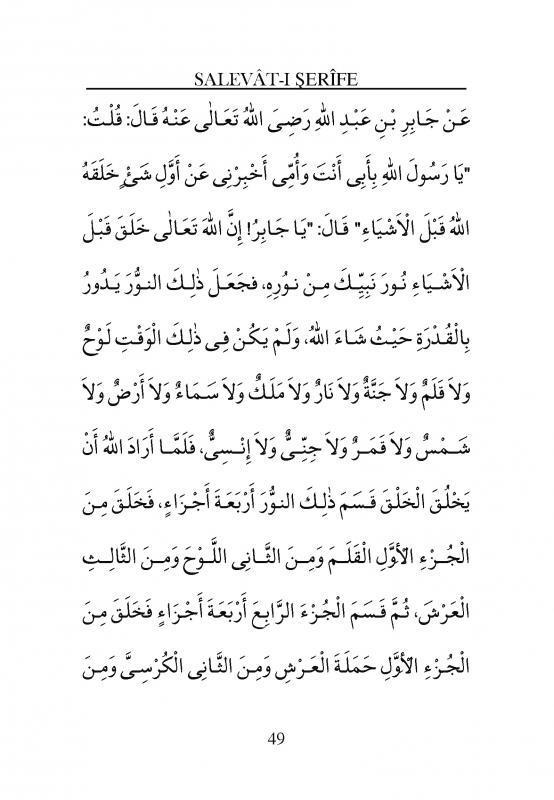 SALEVÂT-I ŞERÎFE
عَنْ جَابِرِ بْنِ عَبْدِ اللهِ رَضِىَ اللهُ تَعَالٰى عَنْهُ قَالَ: قُلْتُ:
"يَا رَسُولَ اللهِ بِأَبِى أَنْتَ وَأُمِّى أَخْبِرْنِى عَنْ أَوَّلِ شَىْءٍ خَلَقَهُ
اللهُ قَبْلَ الْاَشْيَاءِ" قَالَ: "يَا جَابِرُ! إِنَّ اللهَ تَعَالٰى خَلَقَ قَبْلَ
الْاَشْيَاءِ نُورَ نَبِيِّكَ مِنْ نُورِهِ، فَجَعَلَ ذٰلِكَ النُّورَ يَدُورُ
بِالْقُدْرَةِ حَيْثُ شَاءَ اللهُ، وَلَمْ يَكُنْ فِى ذٰلِكَ الْوَقْتِ لَوْحٌ
وَلاَ قَلَمٌ وَلاَ جَنَّةٌ وَلاَ نَارٌ وَلاَ مَلَكٌ وَلاَ سَمَاءٌ وَلاَ أَرْضٌ وَلاَ
شَمْسٌ وَلاَ قَمَرٌ وَلاَ جِنِّىٌّ وَلاَ إِنْسِىٌّ، فَلَمَّا أَرَادَ اللهُ أَنْ
يَخْلُقَ الْخَلْقَ قَسَمَ ذٰلِكَ النُّورَ أَرْبَعَةَ أَجْزَاءٍ، فَخَلَقَ مِنَ
الْجُزْءِ الْأَوَّلِ الْقَلَمَ وَمِنَ الثَّانِى اللَّوْحَ وَمِنَ الثَّالِثِ
الْعَرْشَ، ثُمَّ قَسَمَ الْجُزْءَ الرَّابِعَ أَرْبَعَةَ أَجْزَاءٍ فَخَلَقَ مِنَ
الْجُزْءِ الْأَوَّلِ حَمَلَةَ الْعَرْشِ وَمِنَ الثَّانِى الْكُرْسِىَّ وَمِنَ
49